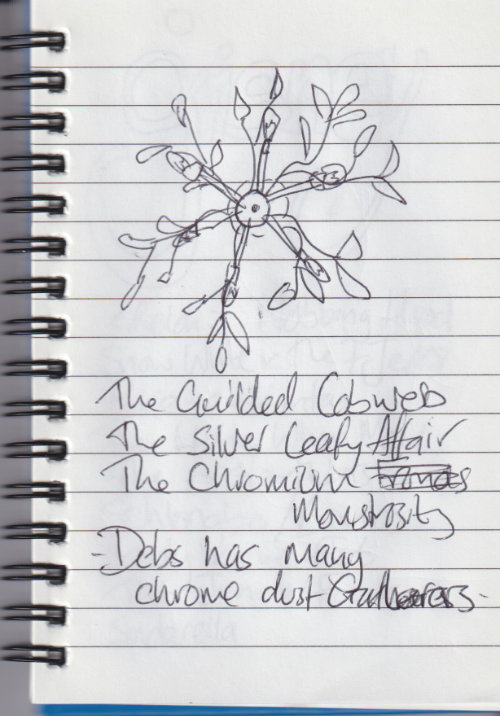 The Guilded Cobweb
The Silver Leafy Affair
The Chromium
Monstrosity
- Debs has many
chrome dust Gatherers.